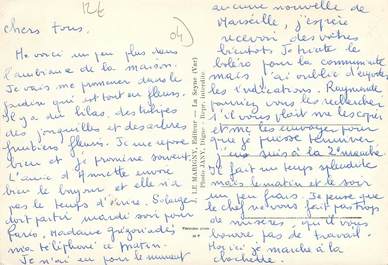 12€
04
chers tous.
Me voici un peu plus dans
l'ambiance de la maison.
Je vais me promener dans le
jardin qui est tout en fleurs.
Il y a du lilas, des tulipes
des jonquilles et des arbres
fruitiers fleuris. Je me repose
bien et je promène souvent.
L'amie d'Annette envoie
bien le bonjour et elle n'a
pas le temps d'écrire. Solange
doit partir mardi soir pour
Paris. Madame
m'a téléphoné ce matin.
Je n'ai eu pour le moment
LE MARIGNY, Editeur — La Seyne (Var)
Photo JANY, Digne - Repr. interdite
aucune nouvelle de
Marseille, j'espère
recevoir des vôtres
bientôt. Je tricote le
boléro pour la communiante
mais j'ai oublié d'emporter
les indications. Raymonde
pourriez vous les rechercher
s'il vous plaît me les copier
et me les envoyer pour
que je puisse terminer
j'en suis à la 2° manche
Il fait un temps splendide
mais le matin et le soir
un peu frais. Je pense que
le chef ne vous fait pas trop
de misères, qu'il vous
donne pas de travail.
Moi ici je marche à la
clochette.